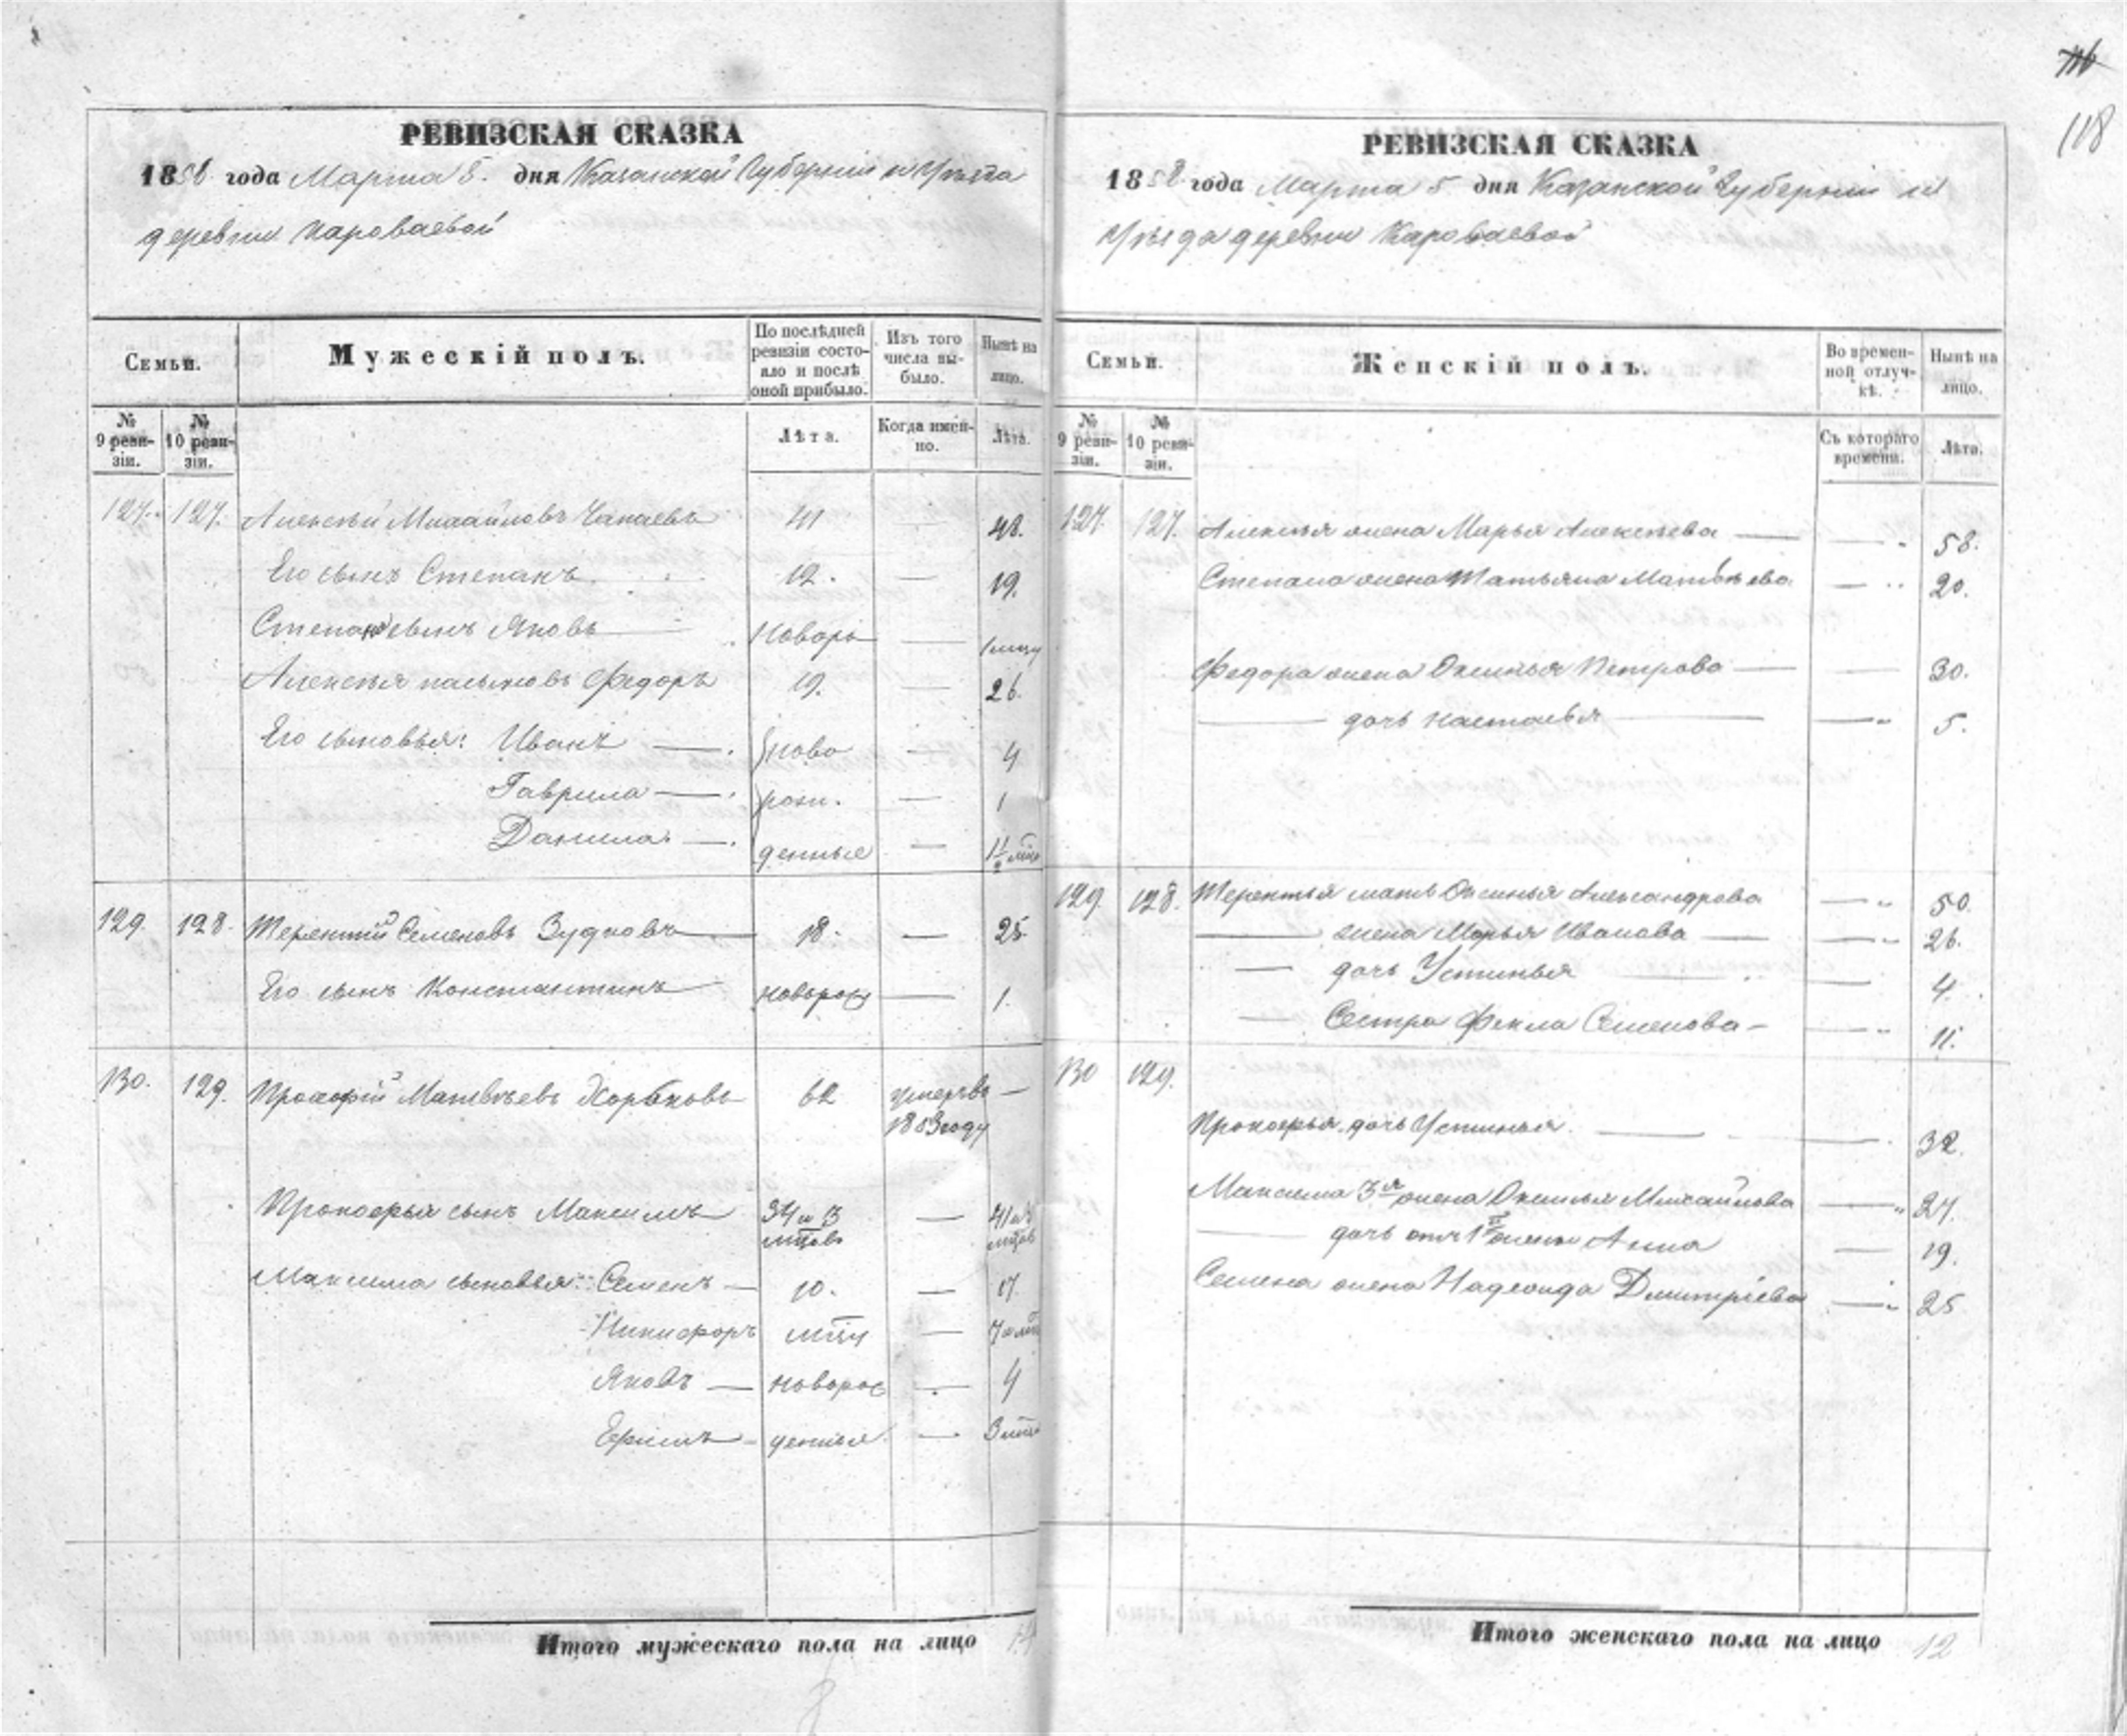 118
РЕВИЗСКАЯ СКАЗКА
1858 года Марта 5. дня Казанской Губерніи и Уѣзда
деревни Кароваевой
Семьи.
Мужескій полъ.
По послѣдней ревизіи состояло и послѣ оной прибыло.
Изъ того числа выбыло.
Нынѣ на лицо.
№ 9 ревизіи.
№ 10 ревизіи.
Лѣта.
Когда именно.
Лѣта.
127. 127. Алексѣй Михайловъ Чапаевъ 41 — 48.
Его сынъ Степанъ 12. — 19.
Степановъ сынъ Яковъ новоро — 1 мцу
Алексѣя пасынокъ Федоръ 19. — 26.
Его сыновья: Иванъ — ново — 4
Гаврила — рож. — 1
Данила — денные — 1/2
129. 128. Терентій Семеновъ Зудковъ 18. — 25
Его сынъ Константинъ новорож — 1.
130. 129. Прокофій Матвѣевъ Хорбковъ 62 умеръ въ —
1853 году
Прокофья сынъ Максимъ 34 и 3 — 41
мцовъ мцов
Максима сыновья: Семенъ — 10. — 17
Никифоръ мцу — 7
Яковъ — новорож — 4
Ефимъ — денные — 3
Итого мужескаго пола на лицо 14
РЕВИЗСКАЯ СКАЗКА
1858 года Марта 5 дня Казанской Губерніи и
Уѣзда деревни Кароваевой
Семьи.
Женскій полъ.
Во временной отлучкѣ.
Нынѣ на лицо.
№ 9 ревизіи.
№ 10 ревизіи.
Съ котораго времени.
Лѣта.
127. 127. Алексѣя жена Марья Алексѣева — — 58.
Степана жена Татьяна Матвѣева — 20.
Федора жена Оксинья Петрова — — 30.
— дочь Настасья — — 5.
129 128. Терентья мать Оксинья Александрова — 50.
— жена Марья Иванова — — 26.
— дочь Устинья — — 4.
— Сестра Фекла Семенова — — 11.
130 129.
Прокофья дочь Устинья. — — 32.
Максима 3я жена Оксинья Михайлова — 27.
— дочь отъ 1й жены Анна — 19.
Семена жена Надежда Дмитріева — 25
Итого женскаго пола на лицо 12